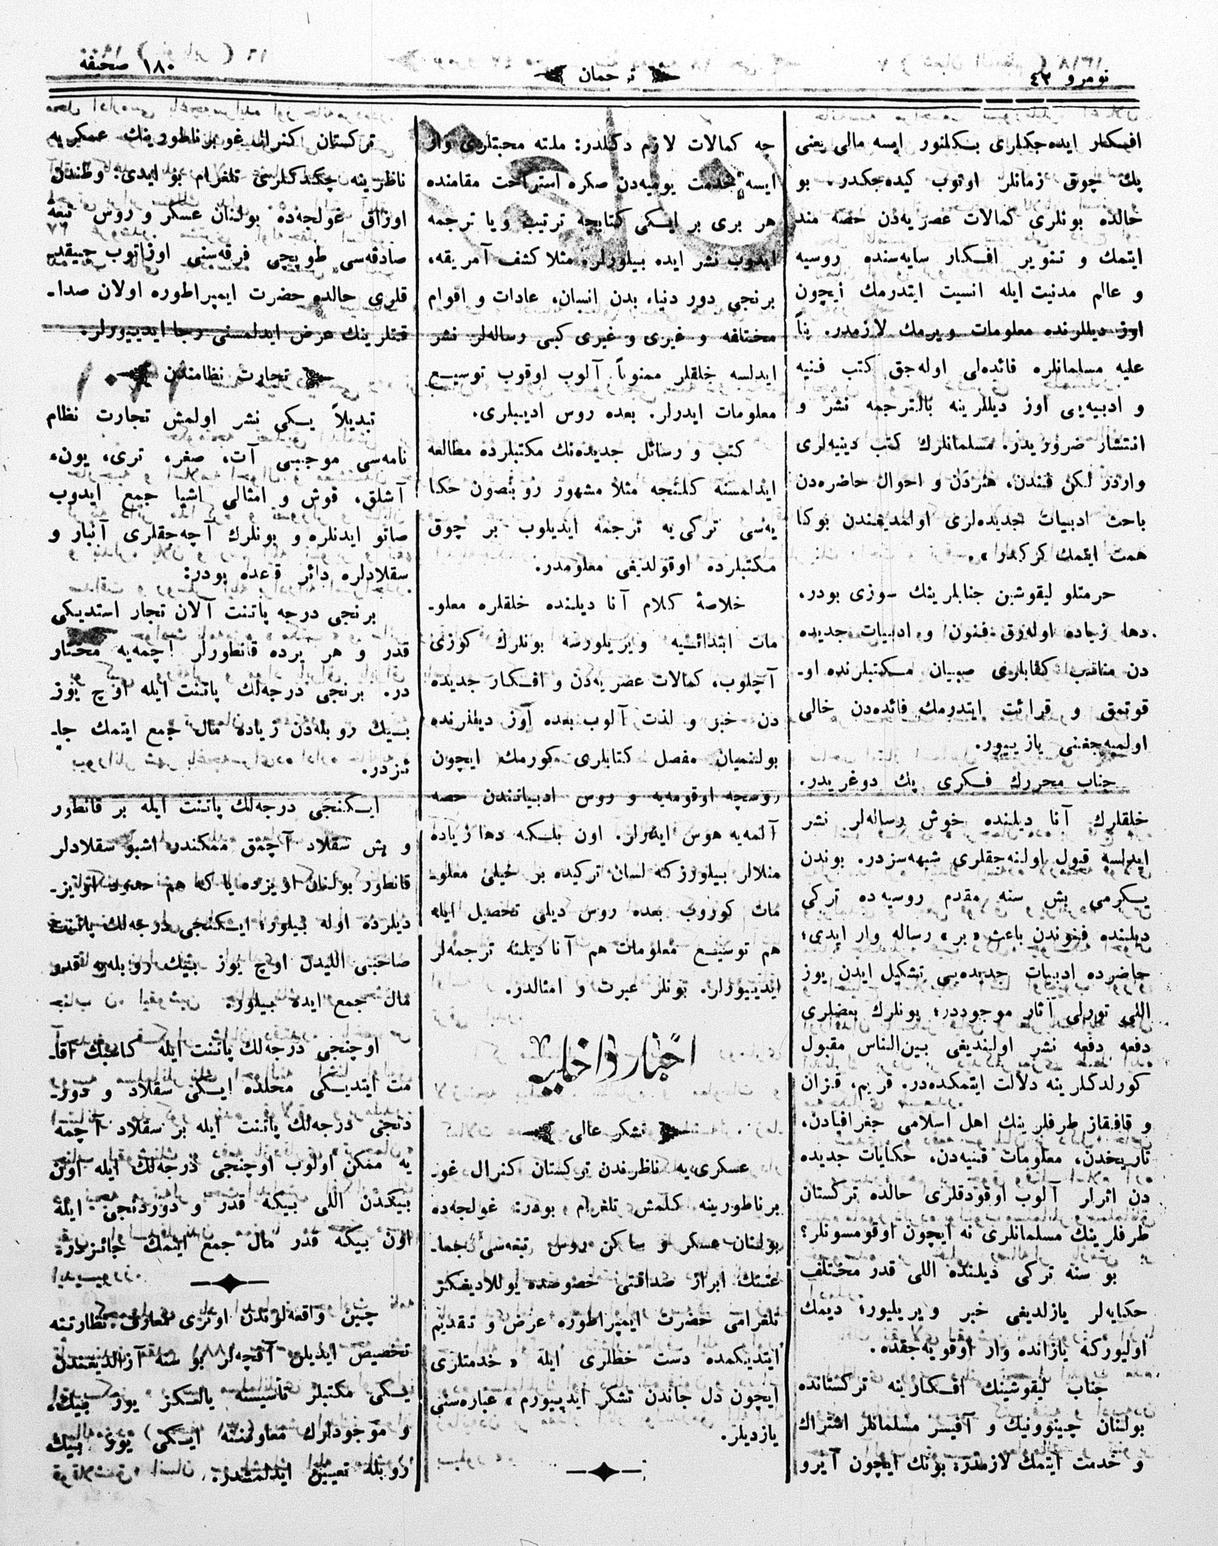 نومرو ٤٢
ترجمان
١٨٠ صحیفه
افیکار ایده‌جکلری بکلنور ایسه مالی یعنی
پك چوق زمانلر اوتوب کیده‌جکدر. بو
حالده بونلری کمالات عصریه‌دن حصه مند
ایتمك و تنویر افکار سایه‌سنده روسیه
و عالم مدنیت ایله انسیت ایتدرمك ایچون
اوز دیللرنده معلومات ویرمك لازمدر. بناً
علیه مسلمانلره فائده‌لی اوله‌جق کتب فنیه
و ادبیه‌یی اوز دیللرینه بالترجمه نشر و
انتشار ضروریدر. مسلمانلرك کتب دینیه‌لری
واردر لکن فندن، هنردن و احوال حاضره‌دن
باحث ادبیات جدیده‌لری اولمدیغندن بوکا
همت ایتمك کرکدر».
حرمتلو لیقوشین جنابلرینك سوزی بودر.
دها زیاده اوله‌رق فنون و ادبیات جدیده
دن مناسب کتابلری صبیان مکتبلرنده او۔
قوتمق و قرائت ایتدرمك فائده‌دن خالی
اولمیه‌جغنی یازیور.
جناب محررك فکری پك دوغریدر.
خلقلرك آنا دیلنده خوش رساله‌لر نشر
ایدلسه قبول اولنه‌جقلری شبهه‌سزدر. بوندن
یکرمی بش سنه مقدم روسیه‌ده ترکی
دیلنده فنوندن باعث «بر» رساله وار ایدی؛
حاضرده ادبیات جدیده‌یی تشکیل ایدن یوز
اللی تورلی آثار موجوددر؛ بونلرك بعضلری
دفعه دفعه نشر اولندیغی بین‌الناس مقبول
کورلدکلرینه دلالت ایتمکده‌در. قریم، قزان
و قافقاز طرفلرینك اهل اسلامی جغرافیادن،
تاریخدن، معلومات فنیه‌دن، حکایات جدیده
دن اثرلر آلوب اوقودقلری حالده ترکستان
طرفلرینك مسلمانلری نه ایچون اوقومسونلر؟
بو سنه ترکی دیلنده اللی قدر مختلف
حکایه‌لر یازلدیغی خبر ویریلیور؛ دیمك
اولیورکه یازانده وار اوقویه‌جقده.
جناب لیقوشینك افکارینه ترکستانده
بولنان چینوونیك و آفیسر مسلمانلر اشتراك
و خدمت ایتمك لازمدر؛ بونك ایچون آیرو
جه کمالات لازم دکلدر: ملته محبتلری وار
ایسه خدمت یومیه‌دن صکره استراحت مقامنده
هر بری بر ایکی کتابچه ترتیب و یا ترجمه
ایدوب نشر ایده بیلورلر. مثلا کشف آمریقه،
برنجی دور دنیا، بدن انسان، عادات و اقوام
مختلفه و غیری و غیری کبی رساله‌لر نشر
ایدلسه خلقلر ممنوناً آلوب اوقوب توسیع
معلومات ایدرلر. بعده روس ادیبلری.
کتب و رسائل جدیده‌نك مکتبلرده مطالعه
ایدلمسنه کلنجه مثلا مشهور روبنصون حکا
یه‌سی ترکی‌یه ترجمه ایدیلوب بر چوق
مکتبلرده اوقولدیغی معلومدر.
خلاصهٔ کلام آنا دیلنده خلقلره معلو۔
مات ابتدائیه ویریلورسه بونلرك کوزی
آچلوب، کمالات عصریه‌دن و افکار جدیده
دن خبر و لذت آلوب بعده اوز دیللرنده
بولنمیان مفصل کتابلری کورمك ایچون
روسچه اوقومه‌یه و روس ادبیاتندن حصه
آلمه‌یه هوس ایدرلر. اون بلکه دها زیاده
منلالر بیلورزکه لسان ترکیده بر خیلی معلو۔
مات کوروب بعده روس دیلی تحصیل ایله
هم توسیع معلومات هم آنا دیلنه ترجمه‌لر
ایدییورلر. بونلر عبرت و امثالدر.
اخبار داخلیه
تشکر عالی
عسکری‌یه ناظرندن ترکستان کنرال غو۔
برناطورینه کلمش تلغرام بودر: غولجه‌ده
بولنان عسکر و ساکن روس تبعه‌سی جما۔
عتنك ابراز صداقتی خصوصده یوللادیغکز
تلغرامی حضرت ایمپراطوره عرض و تقدیم
ایتدیکمده دست خطلری ایله «خدمتلری
ایچون دل جاندن تشکر ایدییورم» عباره‌سنی
یازدیلر.
ترکستان کنرال غوبرناطورینك عسکریه
ناظرینه چکدکلری تلغرام بو ایدی: وطندن
اوزاق غولجه‌ده بولنان عسکر و روس تبعه
صادقه‌سی طوپچی فرقه‌سنی اوزاتوب چیقد۔
قلری حالده حضرت ایمپراطوره اولان صدا۔
قتلرینك عرض ایدلمسنی رجا ایدییورلر.
تجارت نظامندن
تبدیلاً یکی نشر اولمش تجارت نظام
نامه‌سی موجبی آت، صغر، تری، یون،
آشلق، قوش و امثالی اشیا جمع ایدوب
صاتو ایدنلره و بونلرك آچه‌جقلری آنبار و
سقلادلره دائر قاعده بودر:
برنجی درجه پاتنت آلان تجار استدیکی
قدر و هر یرده قانطورلر آچمه‌یه مختار
در. برنجی درجه‌لك پاتنت ایله اوچ یوز
بیك روبله‌دن زیاده مال جمع ایتمك جا۔
ئزدر.
ایکنجی درجه‌لك پاتنت ایله بر قانطور
و بش سقلاد آچمق ممکندر اشبو سقلادلر
قانطور بولنان اویزده یا که هم حدود اویز۔
دیلرده اوله بیلور؛ ایکنجی درجه‌لك پاتنت
صاحبی اللیدن اوچ یوز بیك روبله‌یه قدر
مال جمع ایده بیلور.
اوچنجی درجه‌لك پاتنت ایله کاسبك اقا۔
مت ایتدیکی محلده ایکی سقلاد و دور۔
دنجی درجه‌لك پاتنت ایله بر سقلاد آچمه
یه ممکن اولوب اوچنجی درجه‌لك ایله اون
بیکدن اللی بیکه قدر و دوردنجی ایله
اون بیکه قدر مال جمع ایتمك جائزدر.
چین واقعه‌لرندن اوتری معارف نظارتنه
تخصیص ایدیلن آقچه‌لر بو سنه آزالدیغندن
یکی مکتبلر تأسیسنه یالکز یوز بیك،
و موجودلرك معاونتنه ایکی یوز بیك
روبله تعیین ایدلمشدر.